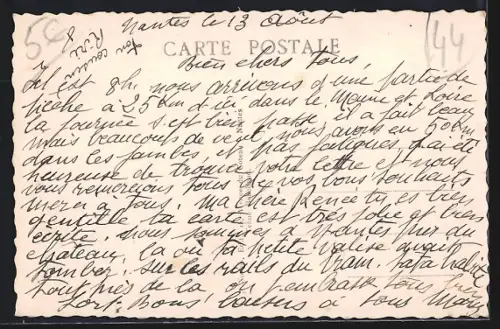 Nantes le 13 Août
5€
44
CARTE POSTALE
ton cousin
Bien chers tous,
Il est 8h. nous arrivons d'une partie de
pêche à 25 km d'ici dans le Maine et Loire
la journée s'est bien passé il a fait beau
mais beaucoups de vent nous avons eu 50 km
dans les jambes, et pas fatigués, j'ai été
heureuse de trouver votre lettre et nous
vous remercions tous de vos bons souhaits
merci à tous. Ma chère Renée tu es bien
gentille ta carte est très jolie et bien
écrite. nous sommes à Nantes près du
château, la où ta petite valise avait
tomber sur les rails du tram.
tout près de la on embrasse tous
fort. Bons baisers à tous